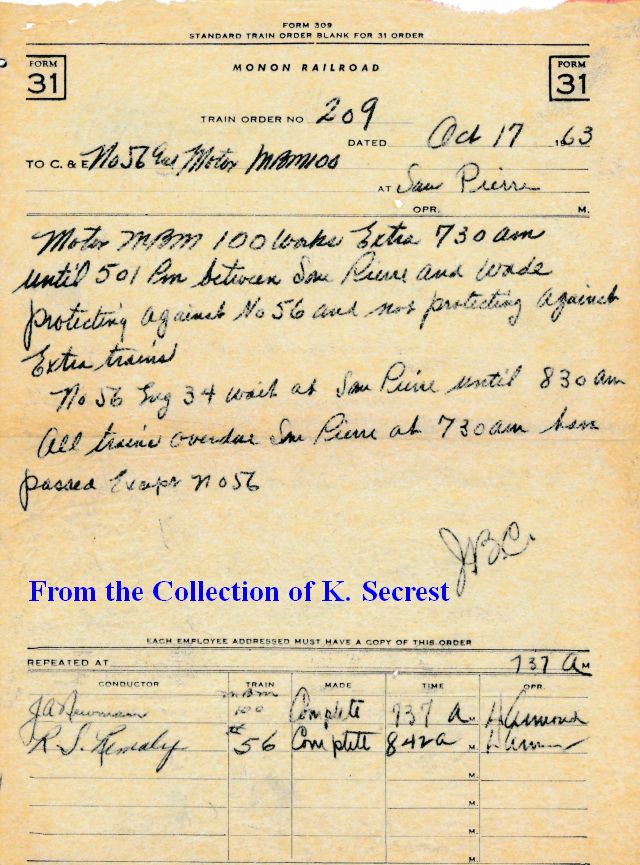 FORM 309
STANDARD TRAIN ORDER BLANK FOR 31 ORDER
FORM 31
MONON RAILROAD
FORM 31
TRAIN ORDER NO 209
DATED Oct 17 1963
TO C. & E. No 56 and Motor MBM100
AT San Pierre
OPR. M.
Motor MBM 100 Works Extra 730 am
until 501 Pm between San Pierre and Wade
protecting against No 56 and not protecting against
Extra trains
No 56 Eng 34 wait at San Pierre until 830 am
All trains overdue San Pierre at 730 am have
passed Except No 56
JBC
From the Collection of K. Secrest
EACH EMPLOYEE ADDRESSED MUST HAVE A COPY OF THIS ORDER
REPEATED AT 737 A M
CONDUCTOR TRAIN MADE TIME OPR.
JA Newman MBM 100 Complete 737 A M.
R. S. # 56 Complete 842 a M.
M.
M.
M.